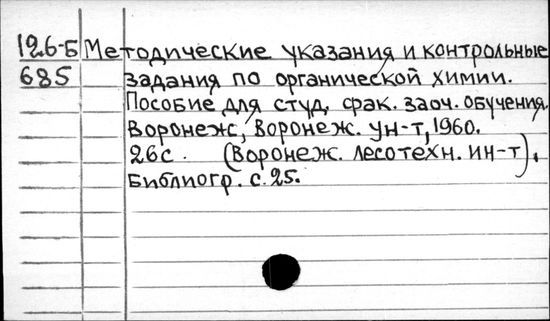 126-Б Методические указания и контрольные
685 задания по органической химии.
Пособие для студ. фак. заоч. обучения.
Воронеж, Воронеж. ун-т, 1960.
26с. (Воронеж. лесотехн. ин-т).
Библиогр. с. 25.